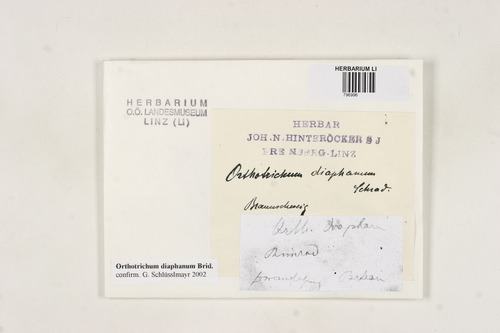 HERBARIUM LI
HERBARIUM
O.Ö. LANDESMUSEUM
LINZ (LI)
HERBAR
JOH.N.HINTERÖCKER S J
FREINBERG-LINZ
Orthotrichum diaphanum
Schrad.
Braunschweig
Orth. diaphan
Orthotrichum diaphanum Brid.
confirm. G. Schlüsslmayr 2002